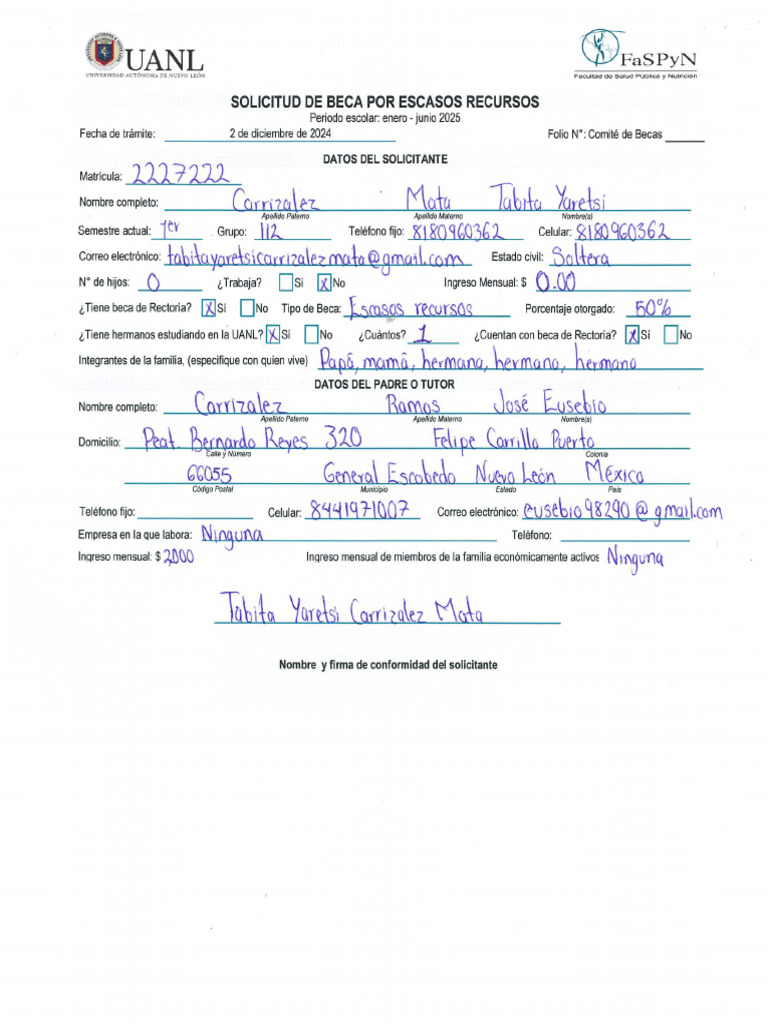 UANL
UNIVERSIDAD AUTÓNOMA DE NUEVO LEÓN
FaSPyN
Facultad de Salud Pública y Nutrición
SOLICITUD DE BECA POR ESCASOS RECURSOS
Periodo escolar: enero - junio 2025
Fecha de trámite: 2 de diciembre de 2024 Folio N°: Comité de Becas
DATOS DEL SOLICITANTE
Matrícula: 2227222
Nombre completo: Carrizalez Mata Tabita Yaretsi
Apellido Paterno Apellido Materno Nombre(s)
Semestre actual: 1er Grupo: 112 Teléfono fijo: 8180960362 Celular: 8180960362
Correo electrónico: tabitayaretsicarrizalezmata@gmail.com Estado civil: Soltera
N° de hijos: 0 ¿Trabaja? Sí X No Ingreso Mensual: $ 0.00
¿Tiene beca de Rectoría? X Sí No Tipo de Beca: Escasos recursos Porcentaje otorgado: 50%
¿Tiene hermanos estudiando en la UANL? X Sí No ¿Cuántos? 1 ¿Cuentan con beca de Rectoría? X Sí No
Integrantes de la familia, (especifique con quien vive) Papá, mamá, hermana, hermano, hermano
DATOS DEL PADRE O TUTOR
Nombre completo: Carrizalez Ramos José Eusebio
Apellido Paterno Apellido Materno Nombre(s)
Domicilio: Peat. Bernardo Reyes 320 Felipe Carrillo Puerto
Calle y Número Colonia
66055 General Escobedo Nuevo León México
Código Postal Municipio Estado País
Teléfono fijo: Celular: 8441971007 Correo electrónico: eusebio98290@gmail.com
Empresa en la que labora: Ninguna Teléfono:
Ingreso mensual: $ 2000 Ingreso mensual de miembros de la familia económicamente activos Ninguna
Tabita Yaretsi Carrizalez Mata
Nombre y firma de conformidad del solicitante